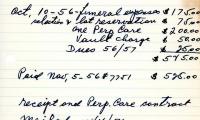 Oct, 10-56-funeral expense $175.00
relatin & lot reservation 75.00
One Perp Care $200.00
Vault charge $ 50.00
Dues 56/57 $ 25.00
$525.00
Paid Nov, 5-56 #7751 $525.00
receipt and Perp. Care contract